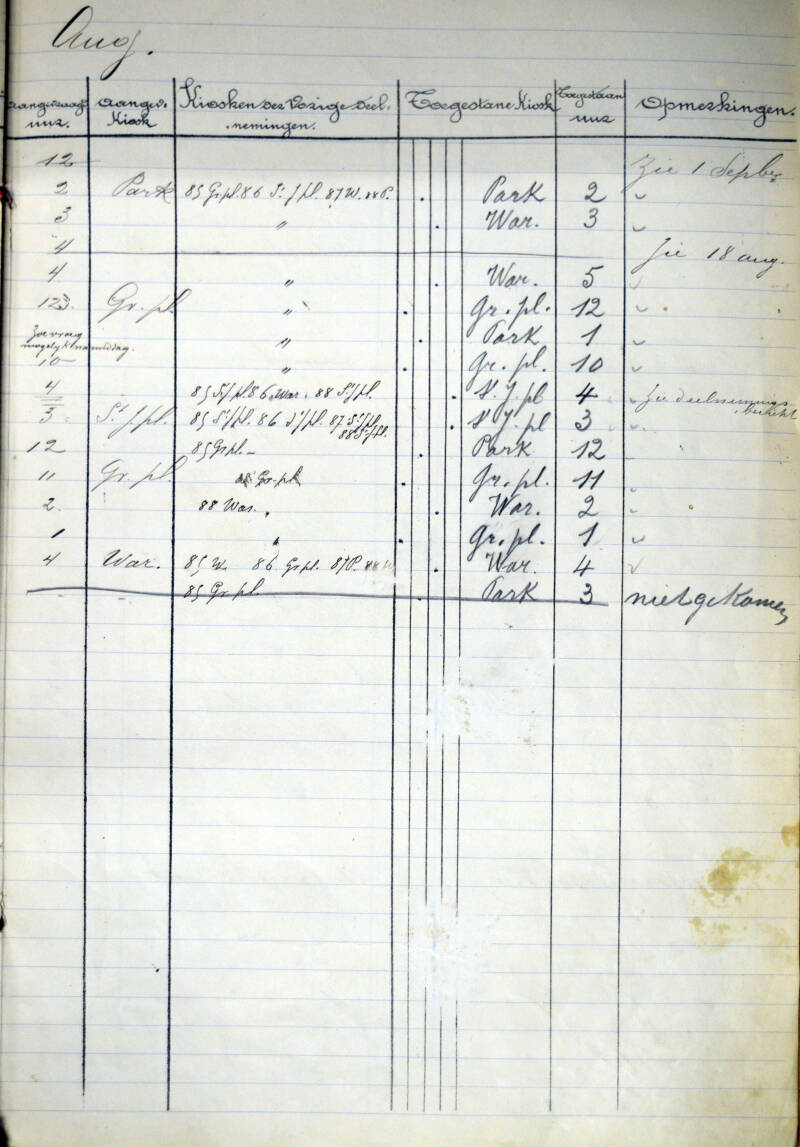 Aug.
Aangevraagd uur. Aangev. Kiosk Kiosken der Vorige deelnemingen. Toegestane Kiosk Toegestaan uur Opmerkingen.
12 Zie 1 Septbr
2 Park 85 Gr.pl. 86 St. J. pl. 87 W. 88 P. Park 2 "
3 " War. 3 "
4 Zie 18 aug.
4 " War. 5 "
12 Gr. pl. " Gr. pl. 12 "
Zoo vroeg mogelyk namiddag. " Park 1 "
10 " Gr. pl. 10 "
4 85 St J pl 86 War. 88 St J pl. St. J. pl 4 " Zie deelnemings bericht
3 St J. pl. 85 St J pl. 86 St J pl. 87 St J pl. 88 St J pl. St J. pl 3 "
12 85 Gr pl. Park 12
11 Gr. pl. Gr. pl. Gr. pl. 11 "
2. 88 War. War. 2 "
1 " Gr. pl. 1 "
4 War. 85 W. 86 Gr pl. 87 P. 88 W War. 4 "
85 Gr. pl. Park 3 niet gekomen